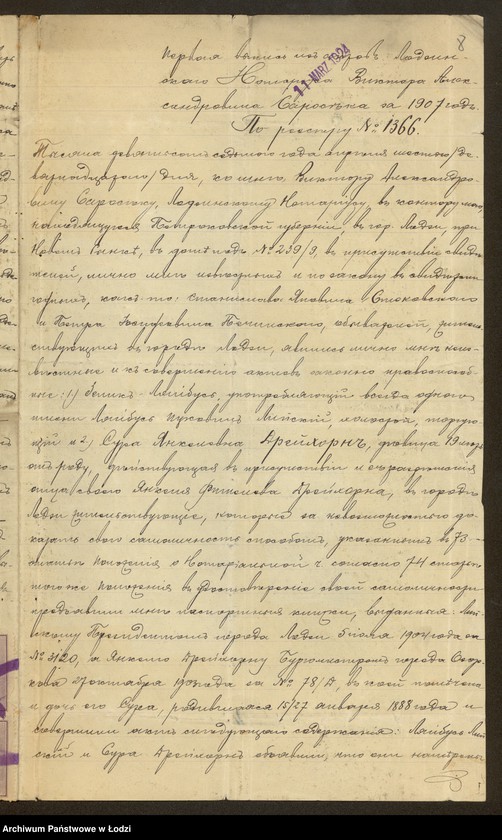 8
11 MARZ 1924
Первая выпись изъ актовъ Лодзин-
скаго Нотаріуса Виктора Алек-
сандровича Саросѣка за 1907 годъ.
По реестру № 1366.
Тысяча девятьсотъ седьмого года апрѣля шестого /де-
вятнадцатаго/ дня, ко мнѣ, Виктору Александро-
вичу Саросѣку, Лодзинскому Нотаріусу, въ контору мою,
находящуюся Петроковской губерніи, въ гор. Лодзи, при
Новомъ Рынкѣ, въ домѣ подъ № 239/9, въ присутствіи свидѣ-
телей, лично мнѣ извѣстныхъ и по закону къ свидѣтель-
Станислава
и Петра обывателей, житель-
ствующихъ въ городѣ Лодзи, явились лично мнѣ неиз-
вѣстные и къ совершенію актовъ законно правоспособ-
ные: 1) Лайбусь, употребляющій всегда одного
имени Лайбусь холостой, торгу-
ющій и 2) Сура Янкелевна Дрейхорнъ, дѣвица 19 лѣтъ
отъ роду, дѣйствующая въ присутствіи и съ разрѣшенія
отца своего Янкеля Дрейхорна, въ городѣ
Лодзи жительствующіе, которые за невозможностью до-
казать свою самоличность способомъ, указаннымъ въ 73-
Положенія о Нотаріальной ч. согласно 74 статьѣ
того же Положенія въ удостовѣреніе своей самоличности
предъявили мнѣ паспортныя книжки, выданныя:
Президентомъ города Лодзи 5 іюля года за
№ 3120, а Янкелю Дрейхорну Бургомистромъ города Озор-
кова 27 октября года за № 78/А, въ коей помѣчена
и дочь его Сура, родившаяся 15/27 января 1888 года и
совершили актъ слѣдующаго содержанія: Лайбусь
и Сура Дрейхорнъ объявили, что они намѣрены
Archiwum Państwowe w Łodzi